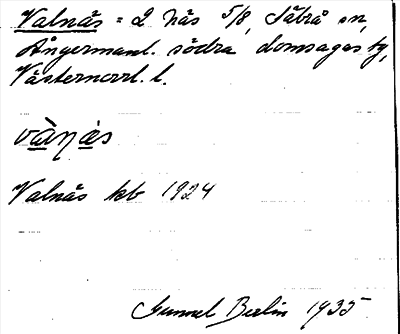 Valnäs = 2 Näs 5/8, Säbrå sn,
Ångermanl. södra domsagas tg,
Västernorrl. l.
vàṇàs
Valnäs kb 1924
Gunnel Berlin 1935